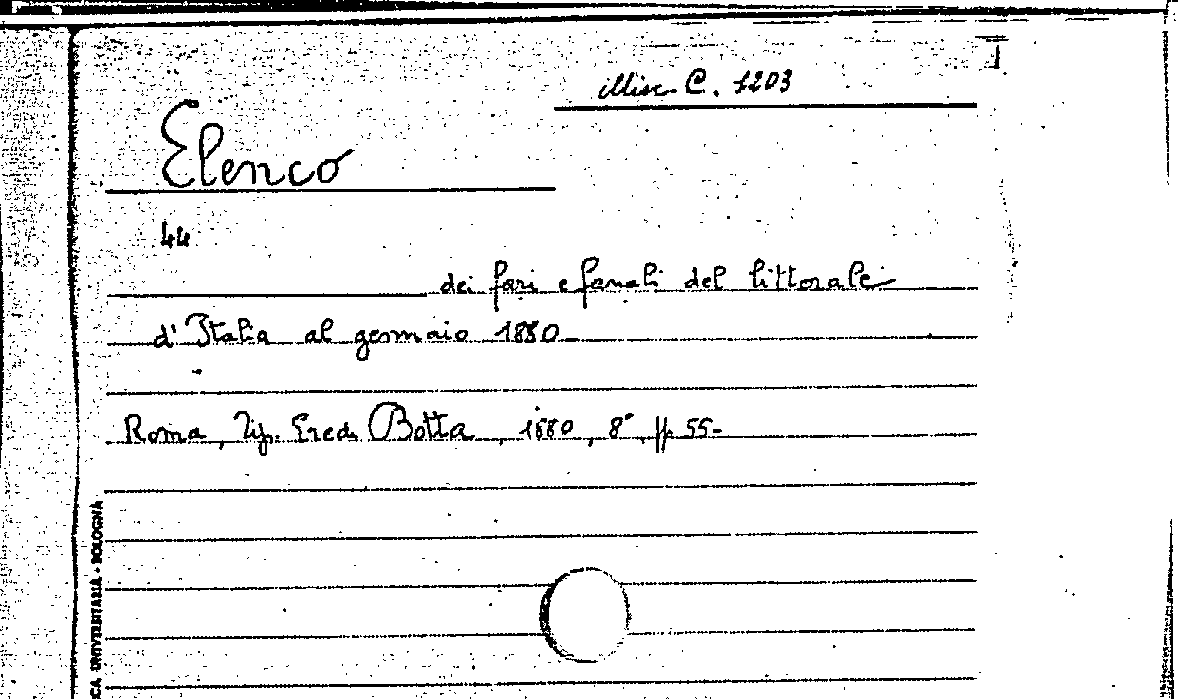 Misc. C. 1203
Elenco
44
dei fari e fanali del littorale
d'Italia al gennaio 1880
Roma, Tip. Eredi Botta, 1880, 8° pp 55-
CA UNIVERSITARIA - BOLOGNA